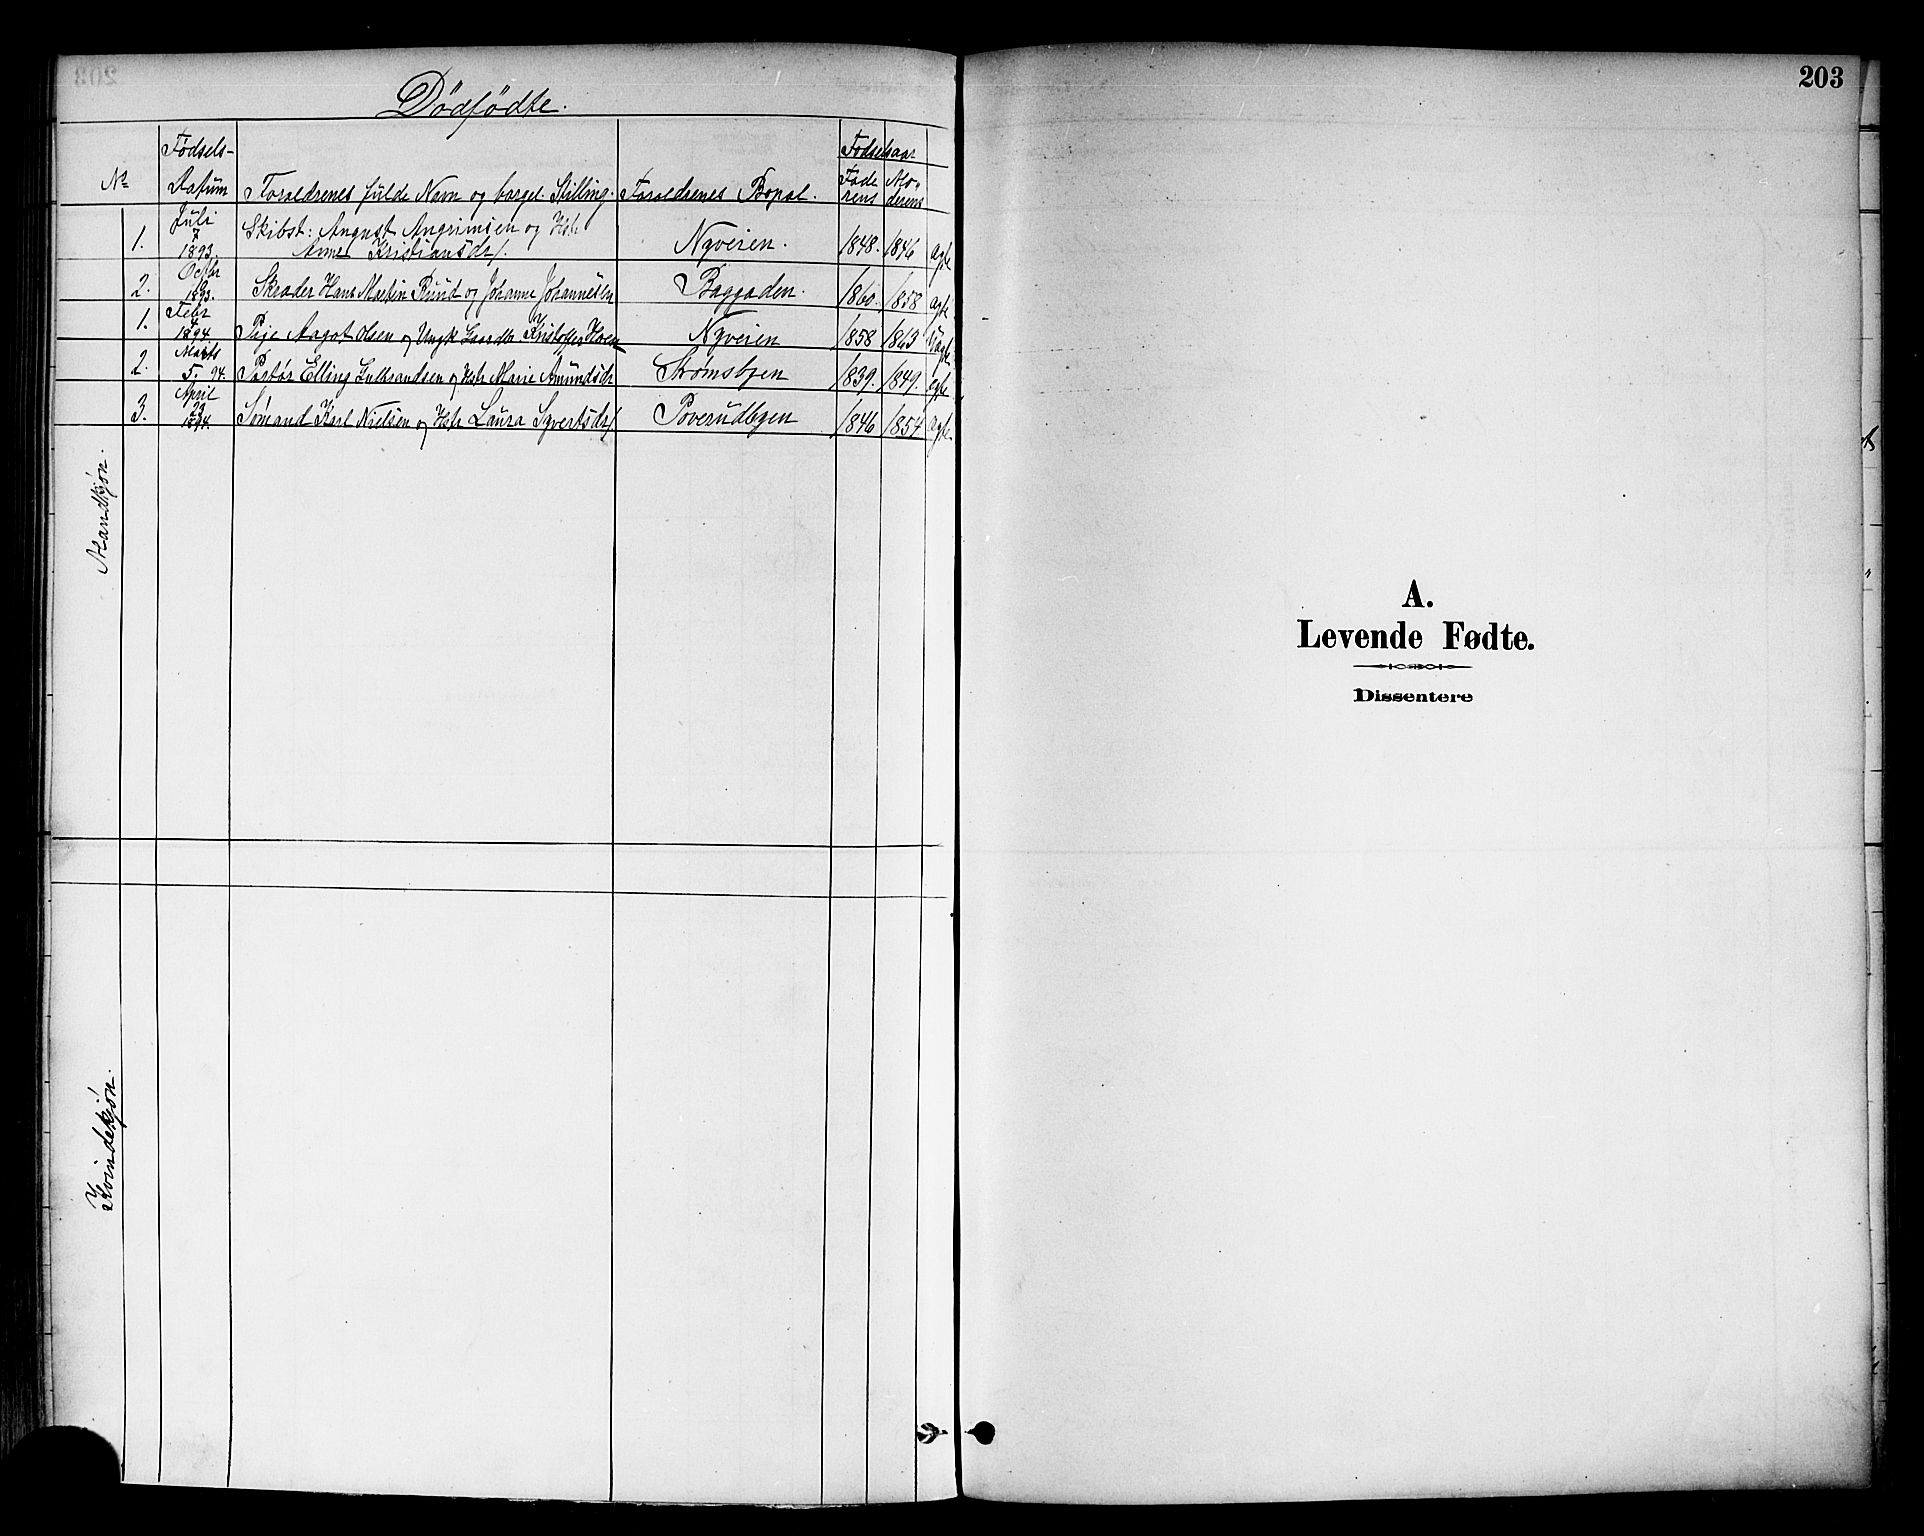 Dødfødte.
No
Fødsels-
Datum
Forældrenes fulde Navn og borgel. Stilling.
Forældrenes Bopæl.
Fødselsaar
Fade
rens
Mo-
derens
Mandkjøn.
1. Juli 7 1893. Skibst: August Angrimsen og Hstr
Anne Kristiansdr. Nyveien. 1848. 1846 ægte
2. Octbr 1893. Skræder Hans Martin Ruud og Johanne Johannesen Baggaden. 1860. 1858 ægte
1. Febr 1894. Pige Aagot Olsen og Ungk Kristoffer Hoen Nyveien 1858 1863 Uægte
2. Marts 5. 94. Elling Gulbrandsen og Hstr Marie Amundsdr Strømsbyen 1839. 1849. ægte
3. April 1894. Sømand Karl Nielsen og Hstr Laura Syvertsdr Poverudbyen 1846 1854 ægte
Kvindekjøn.
203
A.
Levende Fødte.
Dissentere